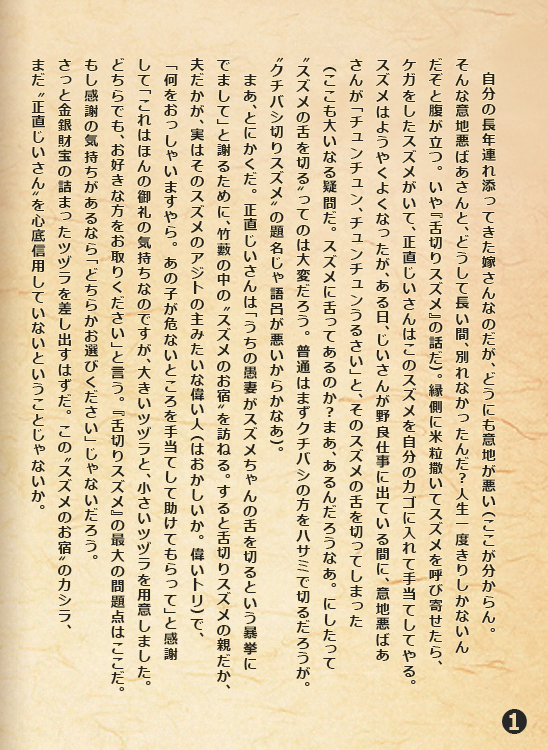 自分の長年連れ添ってきた嫁さんなのだが、どうにも意地が悪い(ここが分からん。
そんな意地悪ばあさんと、どうして長い間、別れなかったんだ？人生一度きりしかないん
だぞと腹が立つ。いや『舌切りスズメ』の話だ)。縁側に米粒撒いてスズメを呼び寄せたら、
ケガをしたスズメがいて、正直じいさんはこのスズメを自分のカゴに入れて手当てしてやる。
スズメはようやくよくなったが、ある日、じいさんが野良仕事に出ている間に、意地悪ばあ
さんが「チュンチュン、チュンチュンうるさい」と、そのスズメの舌を切ってしまった
(ここも大いなる疑問だ。スズメに舌ってあるのか？まあ、あるんだろうなあ。にしたって
〝スズメの舌を切る〟ってのは大変だろう。普通はまずクチバシの方をハサミで切るだろうが。
〝クチバシ切りスズメ〟の題名じゃ語呂が悪いからかなあ)。
　まあ、とにかくだ。正直じいさんは「うちの愚妻がスズメちゃんの舌を切るという暴挙に
でまして」と謝るために、竹藪の中の〝スズメのお宿〟を訪ねる。すると舌切りスズメの親だか、
夫だかが、実はそのスズメのアジトの主みたいな偉い人(はおかしいか。偉いトリ)で、
「何をおっしゃいますやら。あの子が危ないところを手当てして助けてもらって」と感謝
して「これはほんの御礼の気持ちなのですが、大きいツヅラと、小さいツヅラを用意しました。
どちらでも、お好きな方をお取りください」と言う。『舌切りスズメ』の最大の問題点はここだ。
もし感謝の気持ちがあるなら「どちらかお選びください」じゃないだろう。
さっと金銀財宝の詰まったツヅラを差し出すはずだ。この〝スズメのお宿〟のカシラ、
まだ〝正直じいさん〟を心底信用していないということじゃないか。
1